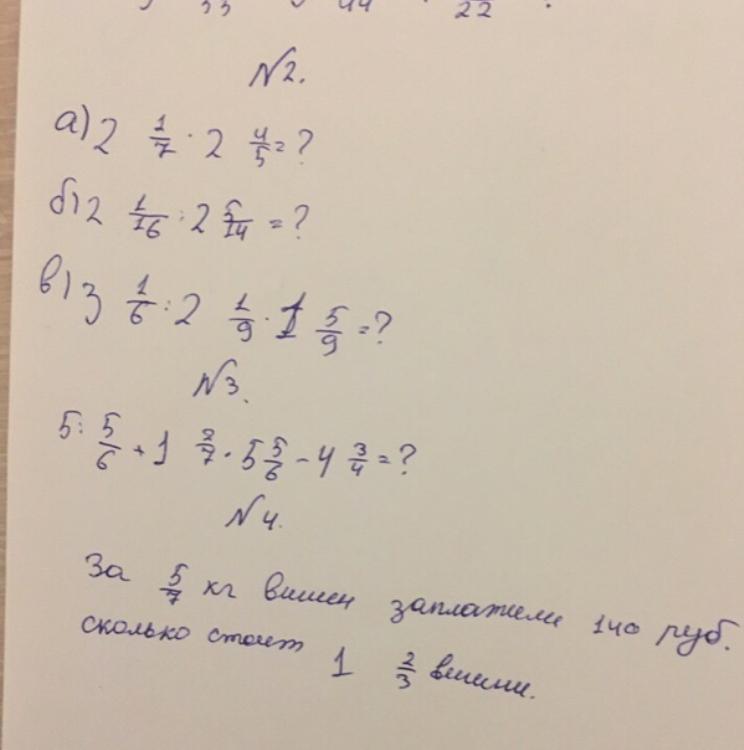 33 44 22
№2.
а) 2 1/7 · 2 4/5 = ?
б) 2 1/16 : 2 5/14 = ?
в) 3 1/6 : 2 1/9 · 1 5/9 = ?
№3.
5 : 5/6 + 1 2/7 · 5 5/6 - 4 3/4 = ?
№4.
За 5/7 кг вишен заплатили 140 руб.
сколько стоит 1 2/3 вишни.